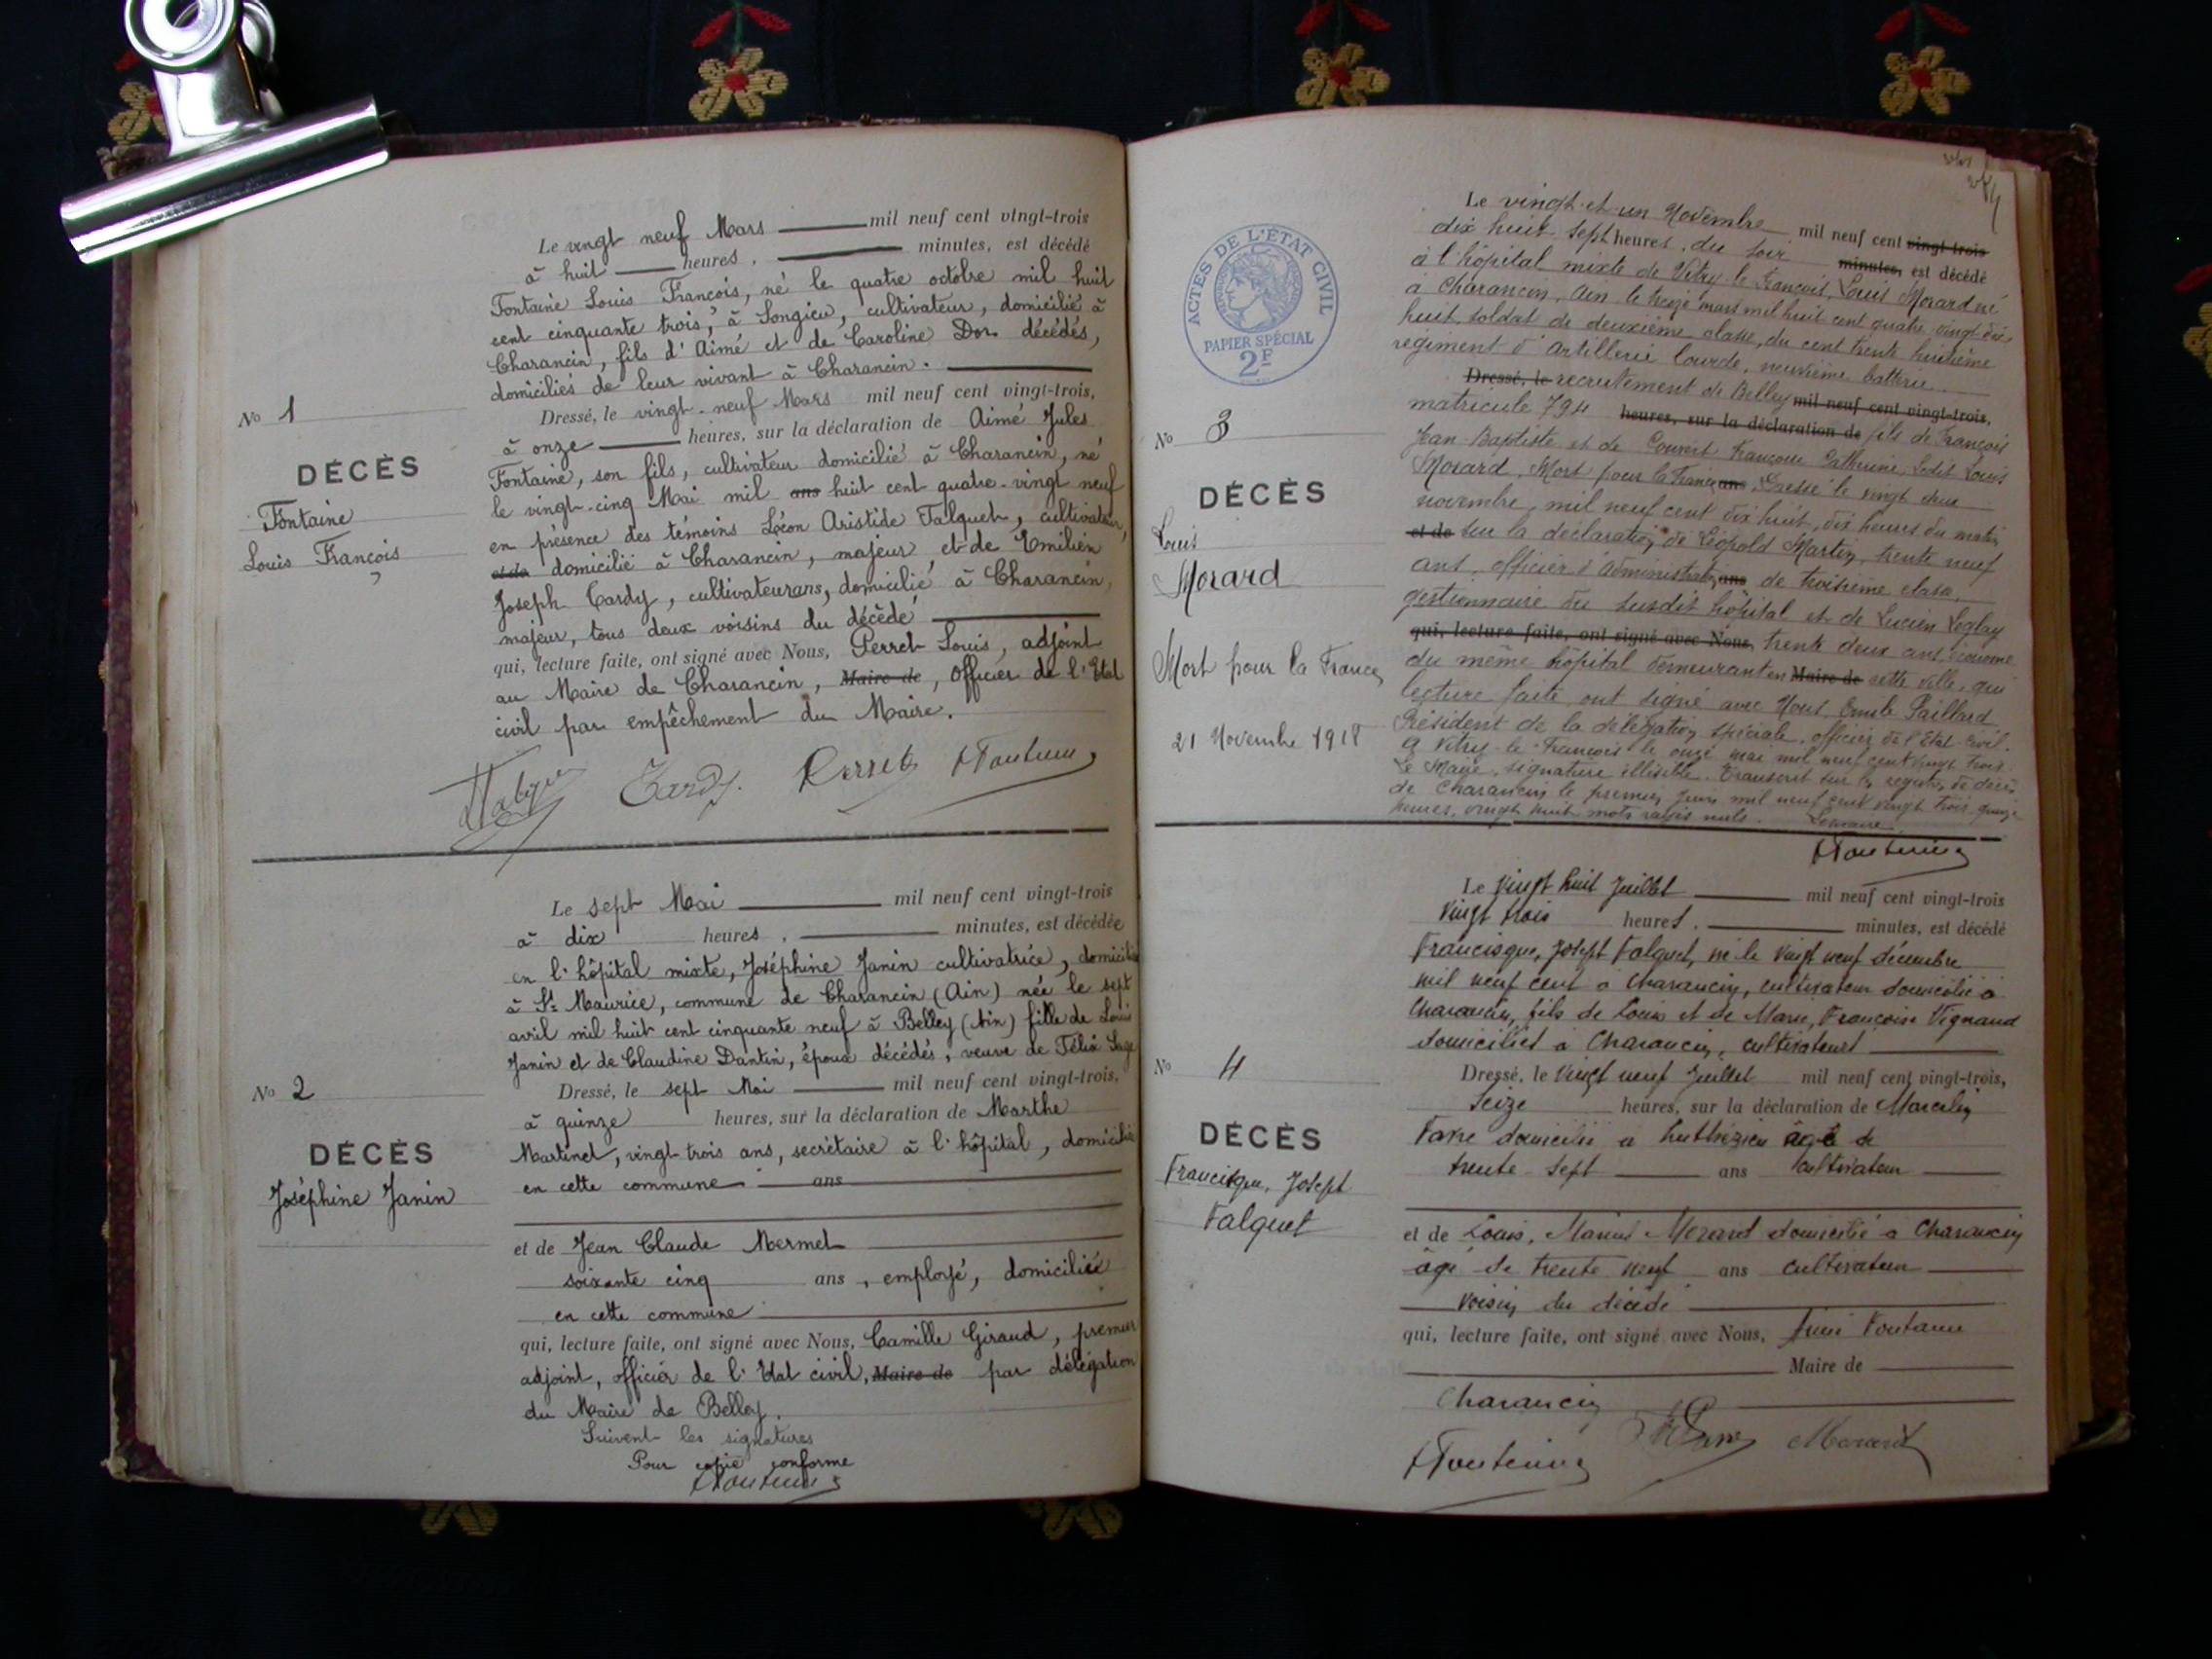 Le vingt neuf Mars mil neuf cent vingt-trois
à huit heures, minutes, est décédé
Fontaine Louis François, né le quatre octobre mil huit
cent cinquante trois, à Songieu, cultivateur, domicilié à
Charancin, fils d'Aimé et de Caroline Dor décédés,
domiciliés de leur vivant à Charancin.
No 1
DÉCÈS
Fontaine
Louis François
Dressé, le vingt-neuf Mars mil neuf cent vingt-trois,
à onze heures, sur la déclaration de Aimé Jules
Fontaine, son fils, cultivateur domicilié à Charancin, né
le vingt-cinq Mai mil ans huit cent quatre-vingt neuf
en présence des témoins Léon Aristide Falquet, cultivateur,
et de domicilié à Charancin, majeur et de Emilien
Joseph Tardy, cultivateur ans, domicilié à Charancin,
majeur, tous deux voisins du décédé
qui, lecture faite, ont signé avec Nous, Perret Louis, adjoint
au Maire de Charancin, Maire de, Officier de l'Etat
civil par empêchement du Maire.
Tardy. Perret
Le sept Mai mil neuf cent vingt-trois
à dix heures, minutes, est décédée
en l'hôpital mixte, Joséphine Janin cultivatrice, domiciliée
à St Maurice, commune de Charancin (Ain) née le sept
avril mil huit cent cinquante neuf à Belley (Ain) fille de Louis
Janin et de Claudine Dantin, époux décédés, veuve de Félix Sage
No 2
DÉCÈS
Joséphine Janin
Dressé, le sept Mai mil neuf cent vingt-trois,
à quinze heures, sur la déclaration de Marthe
Martinet, vingt-trois ans, secrétaire à l'hôpital, domiciliée
en cette commune ans
et de Jean Claude Mermet
soixante cinq ans, employé, domicilié
en cette commune
qui, lecture faite, ont signé avec Nous, Camille Giraud, premier
adjoint, officier de l'Etat civil, Maire de par délégation
du Maire de Belley.
Suivent les signatures
Pour copie conforme
ACTES DE L'ÉTAT CIVIL
PAPIER SPÉCIAL
2F
Le vingt-et-un Novembre mil neuf cent vingt-trois
dix huit sept heures, du soir minutes, est décédé
à l'hôpital mixte de Vitry le François, Louis Morard né
à Charancin, Ain le treize mars mil huit cent quatre-vingt dix
huit, soldat de deuxième classe, du cent trente huitième
régiment d'Artillerie lourde, neuvième batterie
Dressé, le recrutement de Belley mil neuf cent vingt-trois,
matricule 794 heures, sur la déclaration de fils de François
Jean-Baptiste et de Françoise Catherine. Ledit Louis
Morard, Mort pour la France ans. Dressé le vingt deux
novembre, mil neuf cent dix huit, dix heures du matin
et de sur la déclaration de Léopold Martin, trente neuf
ans, officier d'administration ans de troisième classe,
gestionnaire du susdit hôpital et de Lucien Leglay
qui, lecture faite, ont signé avec Nous, trente deux ans, économe
du même hôpital demeurant en Maire de cette ville, qui
lecture faite, ont signé avec Nous, Emile Paillard
Président de la délégation spéciale, officier de l'Etat-civil.
A Vitry-le-François le onze mai mil neuf cent vingt trois.
Le Maire, signature illisible. Transcrit sur les registres de décès
de Charancin le premier Juin mil neuf cent vingt trois quinze
heures, vingt huit mots rayés nuls. Le Maire
No 3
DÉCÈS
Louis
Morard
Mort pour la France
21 Novembre 1918
Le vingt huit Juillet mil neuf cent vingt-trois
vingt trois heures, minutes, est décédé
Francisque, Joseph Falquet, né le vingt neuf décembre
mil neuf cent à Charancin, cultivateur domicilié à
Charancin, fils de Louis et de Marie, Françoise Vignaud
domiciliés à Charancin, cultivateurs
No 4
DÉCÈS
Francisque, Joseph
Falquet
Dressé, le vingt neuf Juillet mil neuf cent vingt-trois,
seize heures, sur la déclaration de Marcelin
domicilié à âgé de
trente-sept ans cultivateur
et de Louis, Marius Morard domicilié à Charancin
âgé de trente neuf ans cultivateur
voisin du décédé
qui, lecture faite, ont signé avec Nous, Fontaine
Maire de
Charancin
Morard